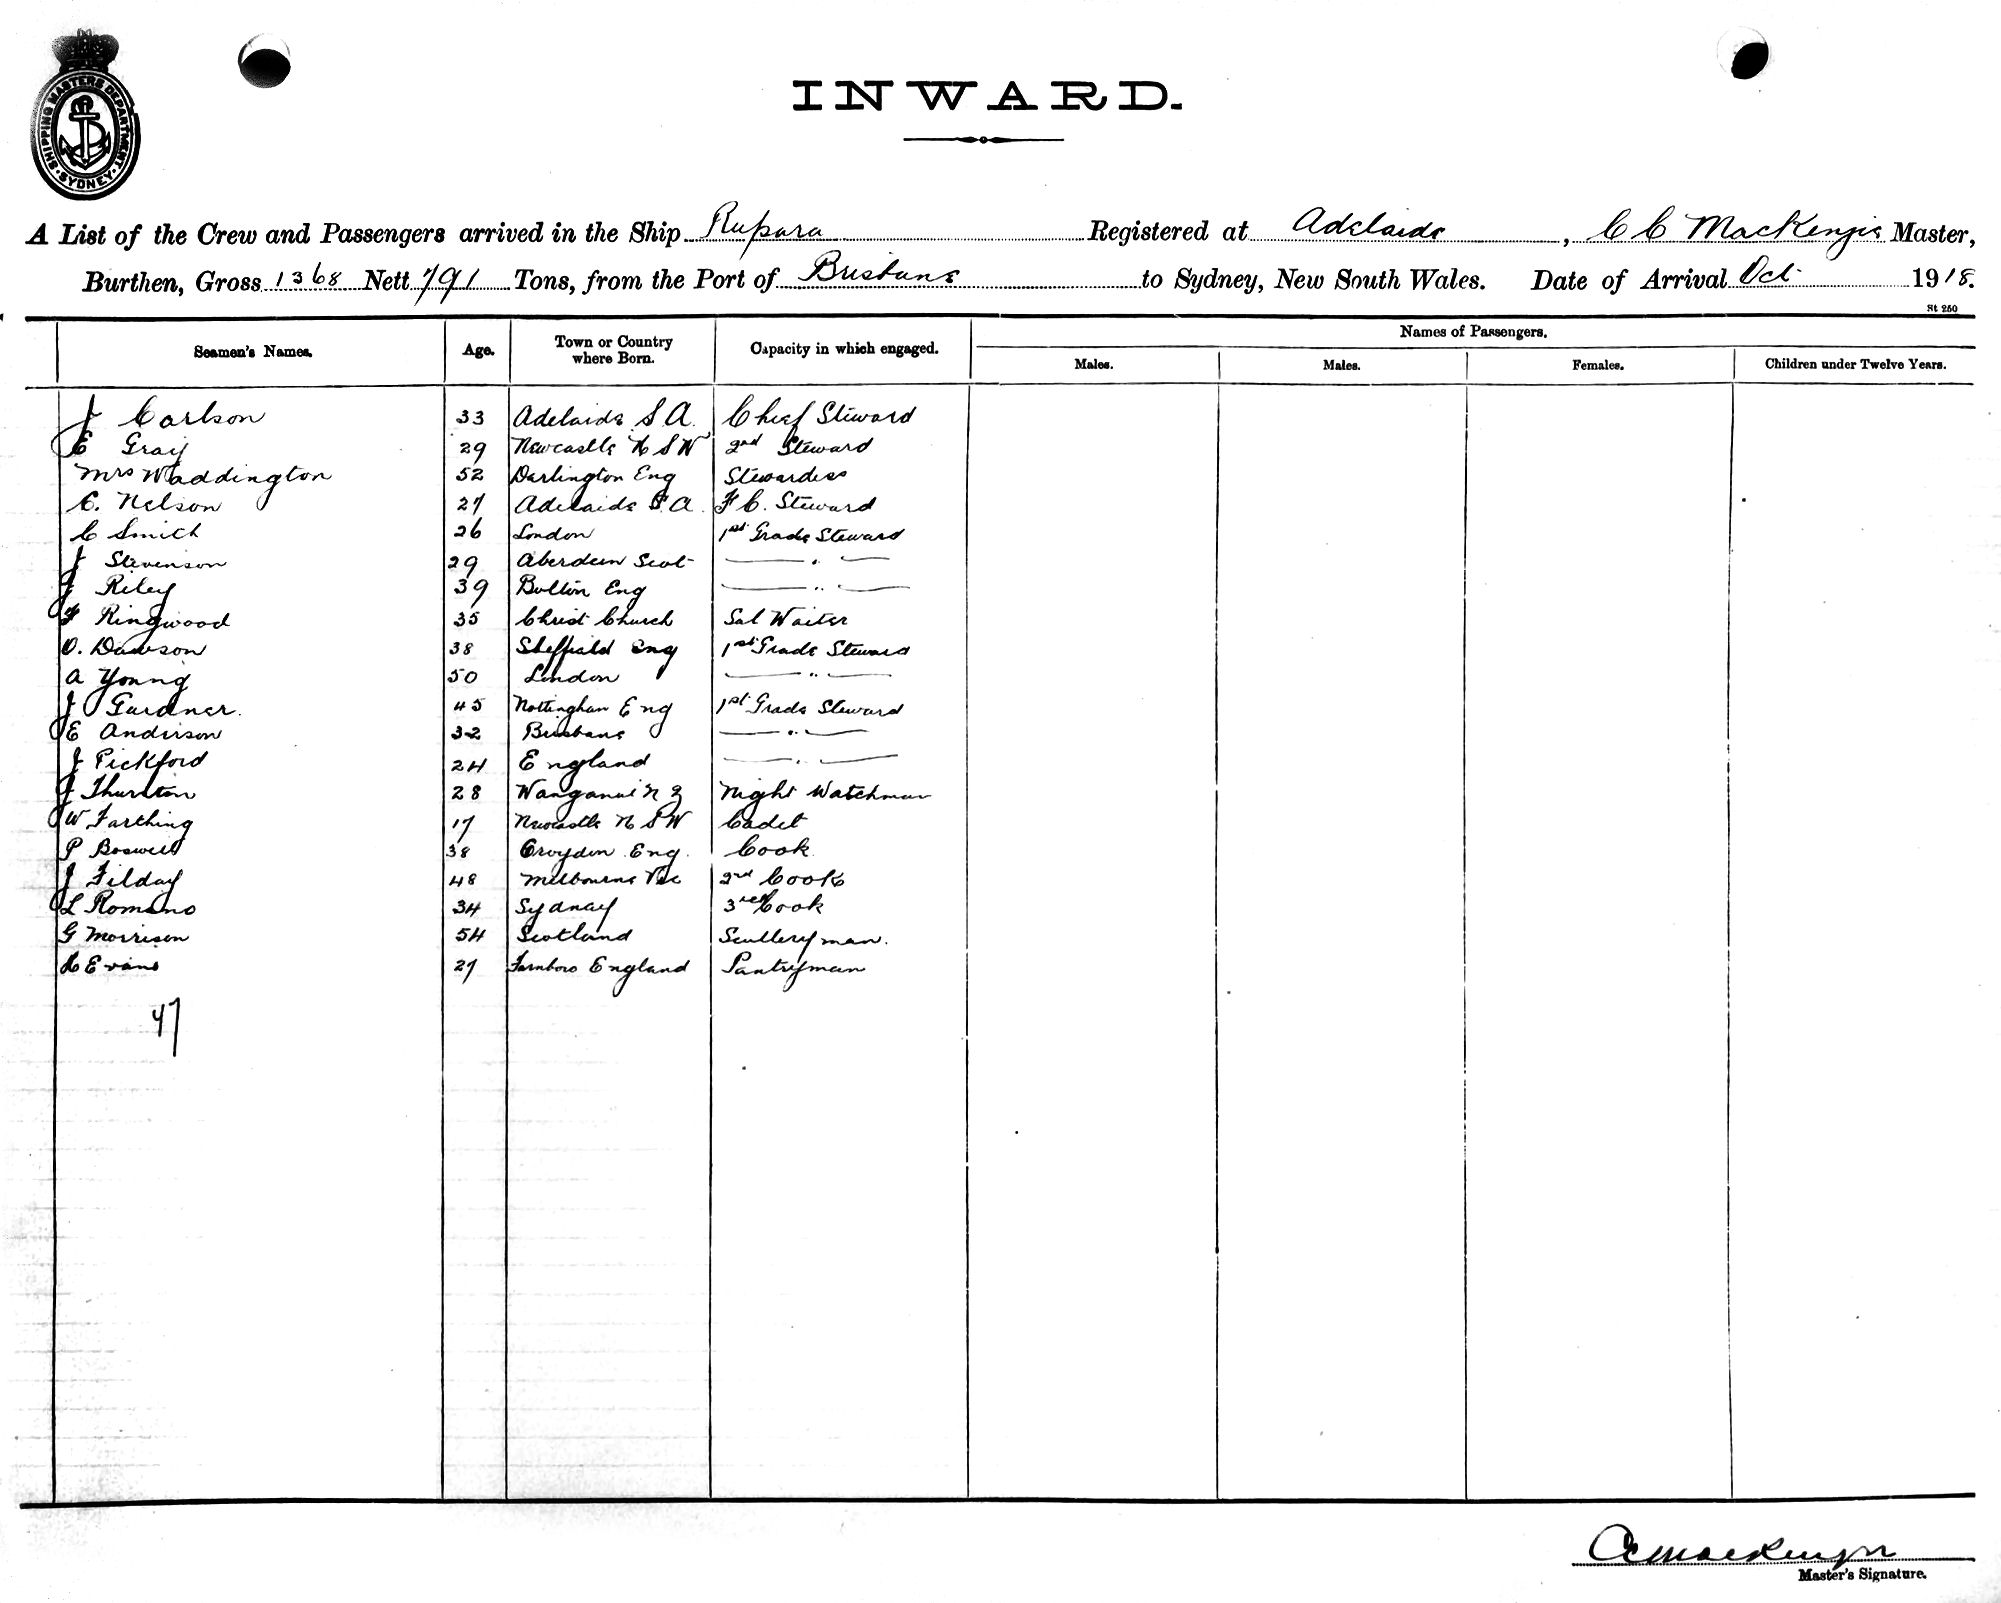 SHIPPING MASTERS DEPARTMENT
SYDNEY
INWARD.
A List of the Crew and Passengers arrived in the Ship Rupara Registered at Adelaide, C C MacKenzie Master,
Burthen, Gross 1368 Nett 791 Tons, from the Port of Brisbane to Sydney, New South Wales. Date of Arrival Oct 1918.
St 250
Seamen's Names. Age. Town or Country where Born. Capacity in which engaged. Names of Passengers.
Males. Males. Females. Children under Twelve Years.
J Carlson 33 Adelaide S A. Chief Steward
E Gray 29 Newcastle N S W 2nd Steward
Mrs Waddington 52 Darlington Eng Stewardess
C. Nelson 27 Adelaide S. A. F C. Steward
C Smith 26 London 1st Grade Steward
J Stevenson 29 Aberdeen Scot — " —
J Riley 39 Bolton Eng — " —
F Ringwood 35 Christ Church Sal Waiter
O. Dawson 38 Sheffield Eng 1st Grade Steward
A Young 50 London — " —
J Gardner. 45 Nottingham Eng 1st Grade Steward
E Anderson 32 Brisbane — " —
J Pickford 24 England — " —
J Thurston 28 Wanganui N Z Night Watchman
W Farthing 17 Newcastle N S W Cadet
P Boswell 38 Croydon Eng. Cook
J Filday 48 Melbourne Vic 2nd Cook
L Romano 34 Sydney 3rd Cook
G Morrison 54 Scotland Sculleryman.
Evans 27 Farnboro England Pantryman
47
CCMacKenzie
Master's Signature.